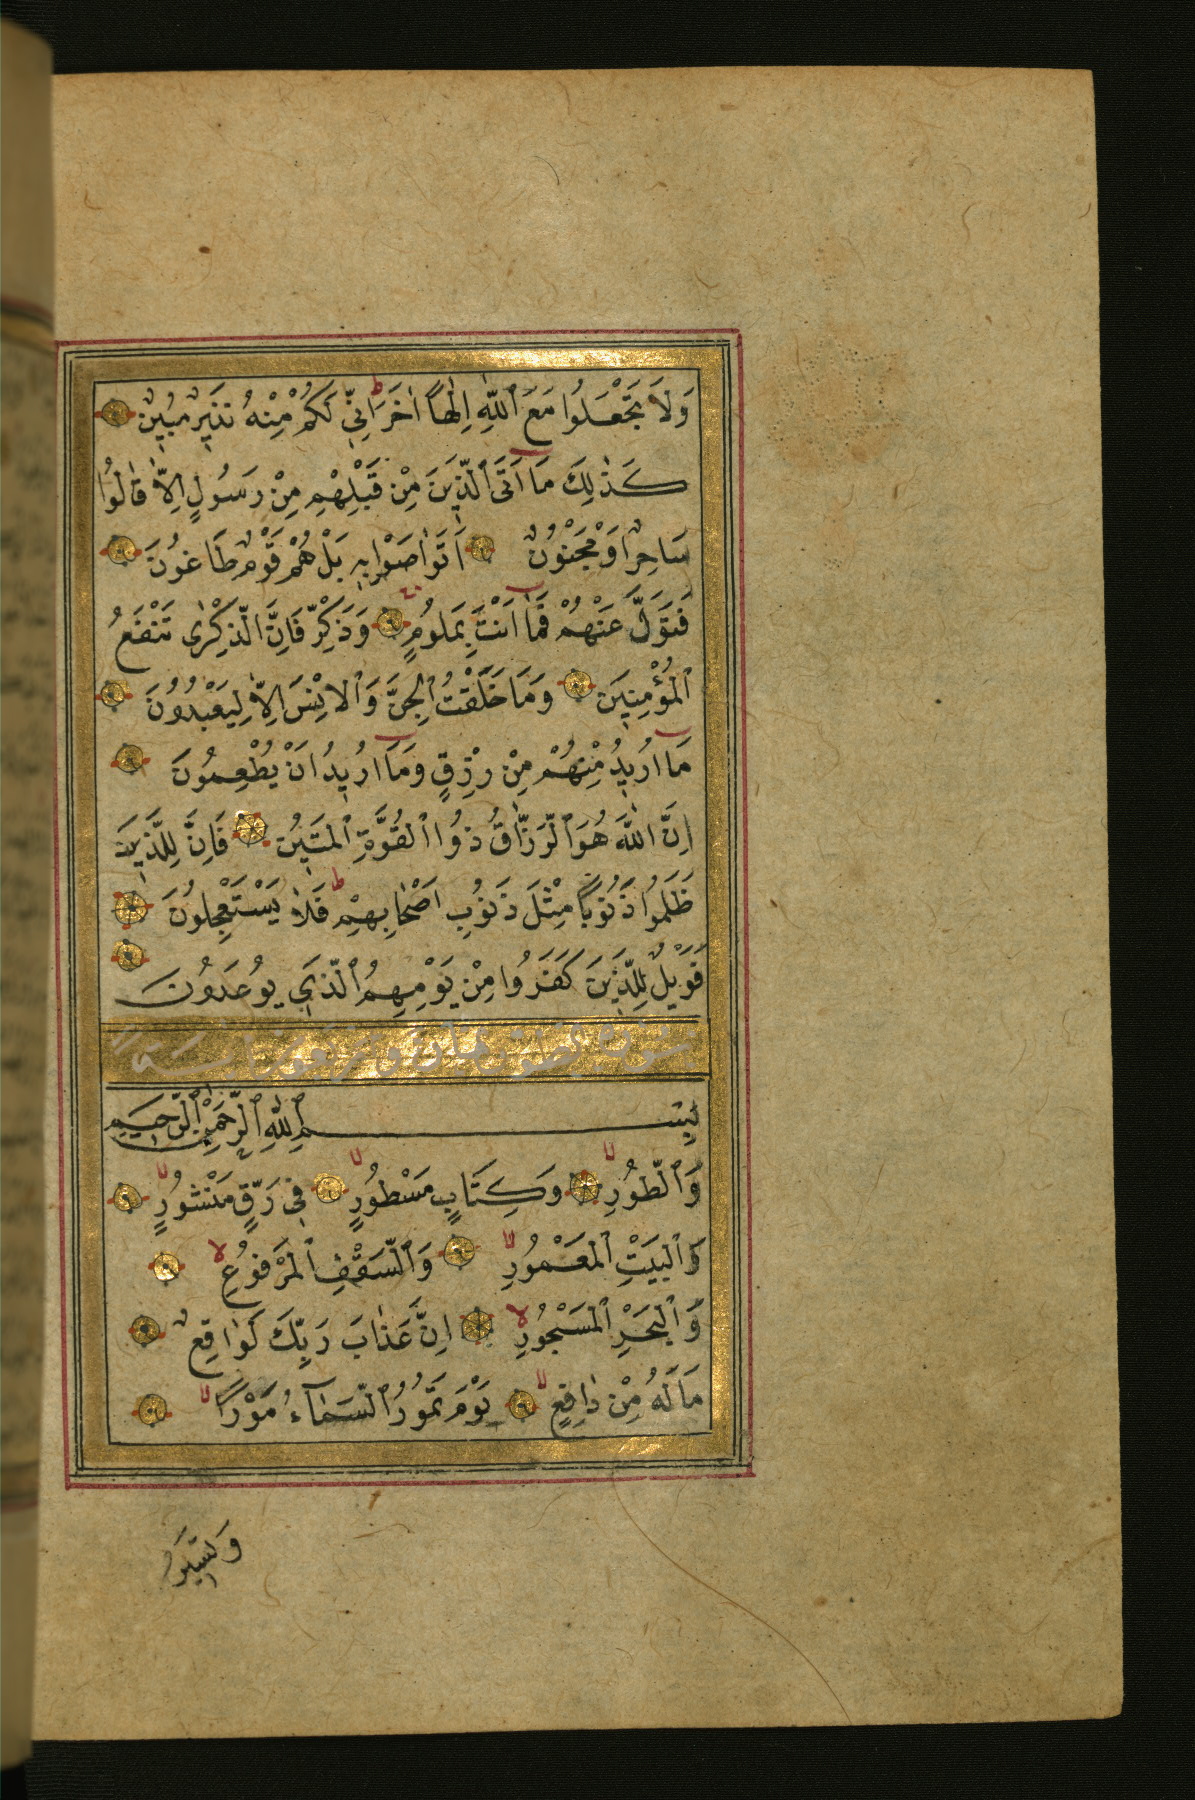 وَلَا تَجْعَلُوا مَعَ ٱللّٰهِ اِلٰهاً اٰخَرَ ط اِنّ۪ي لَكُمْ مِنْهُ نَذ۪يرٌ مُب۪ينٌ
كَذٰلِكَ مَا اَتَى ٱلَّذ۪ينَ مِنْ قَبْلِهِمْ مِنْ رَسُولٍ اِلَّا قَالُوا
سَاحِرٌ اَوْ مَجْنُونٌ اَتَوَاصَوْا بِه۪ بَلْ هُمْ قَوْمٌ طَاغُونَ
فَتَوَلَّ عَنْهُمْ فَمَا اَنْتَ بِمَلُومٍ وَذَكِّرْ فَاِنَّ الذِّكْرٰى تَنْفَعُ
ٱلْمُؤْمِن۪ينَ وَمَا خَلَقْتُ ٱلْجِنَّ وَٱلْاِنْسَ اِلَّا لِيَعْبُدُونَ
مَا اُر۪يدُ مِنْهُمْ مِنْ رِزْقٍ وَمَا اُر۪يدُ اَنْ يُطْعِمُونَ
اِنَّ اللّٰهَ هُوَ ٱلرَّزَّاقُ ذُوا ٱلْقُوَّةِ ٱلْمَت۪ينُ فَاِنَّ لِلَّذ۪ينَ
ظَلَمُوا ذَنُوباً مِثْلَ ذَنُوبِ اَصْحَابِهِمْ ط فَلَا يَسْتَعْجِلُونَ
فَوَيْلٌ لِلَّذ۪ينَ كَفَرُوا مِنْ يَوْمِهِمُ ٱلَّذ۪ي يُوعَدُونَ
سورة الطور
بِسْمِ ٱللّٰهِ ٱلرَّحْمٰنِ ٱلرَّح۪يمِ
وَٱلطُّورِ لا وَكِتَابٍ مَسْطُورٍ لا ف۪ي رَقٍّ مَنْشُورٍ لا
وَٱلْبَيْتِ ٱلْمَعْمُورِ لا وَٱلسَّقْفِ ٱلْمَرْفُوعِ لا
وَٱلْبَحْرِ ٱلْمَسْجُورِ لا اِنَّ عَذَابَ رَبِّكَ لَوَاقِعٌ
مَا لَهُ مِنْ دَافِعٍ لا يَوْمَ تَمُورُ ٱلسَّمَآءُ مَوْرًا لا
وَتَس۪يرُ